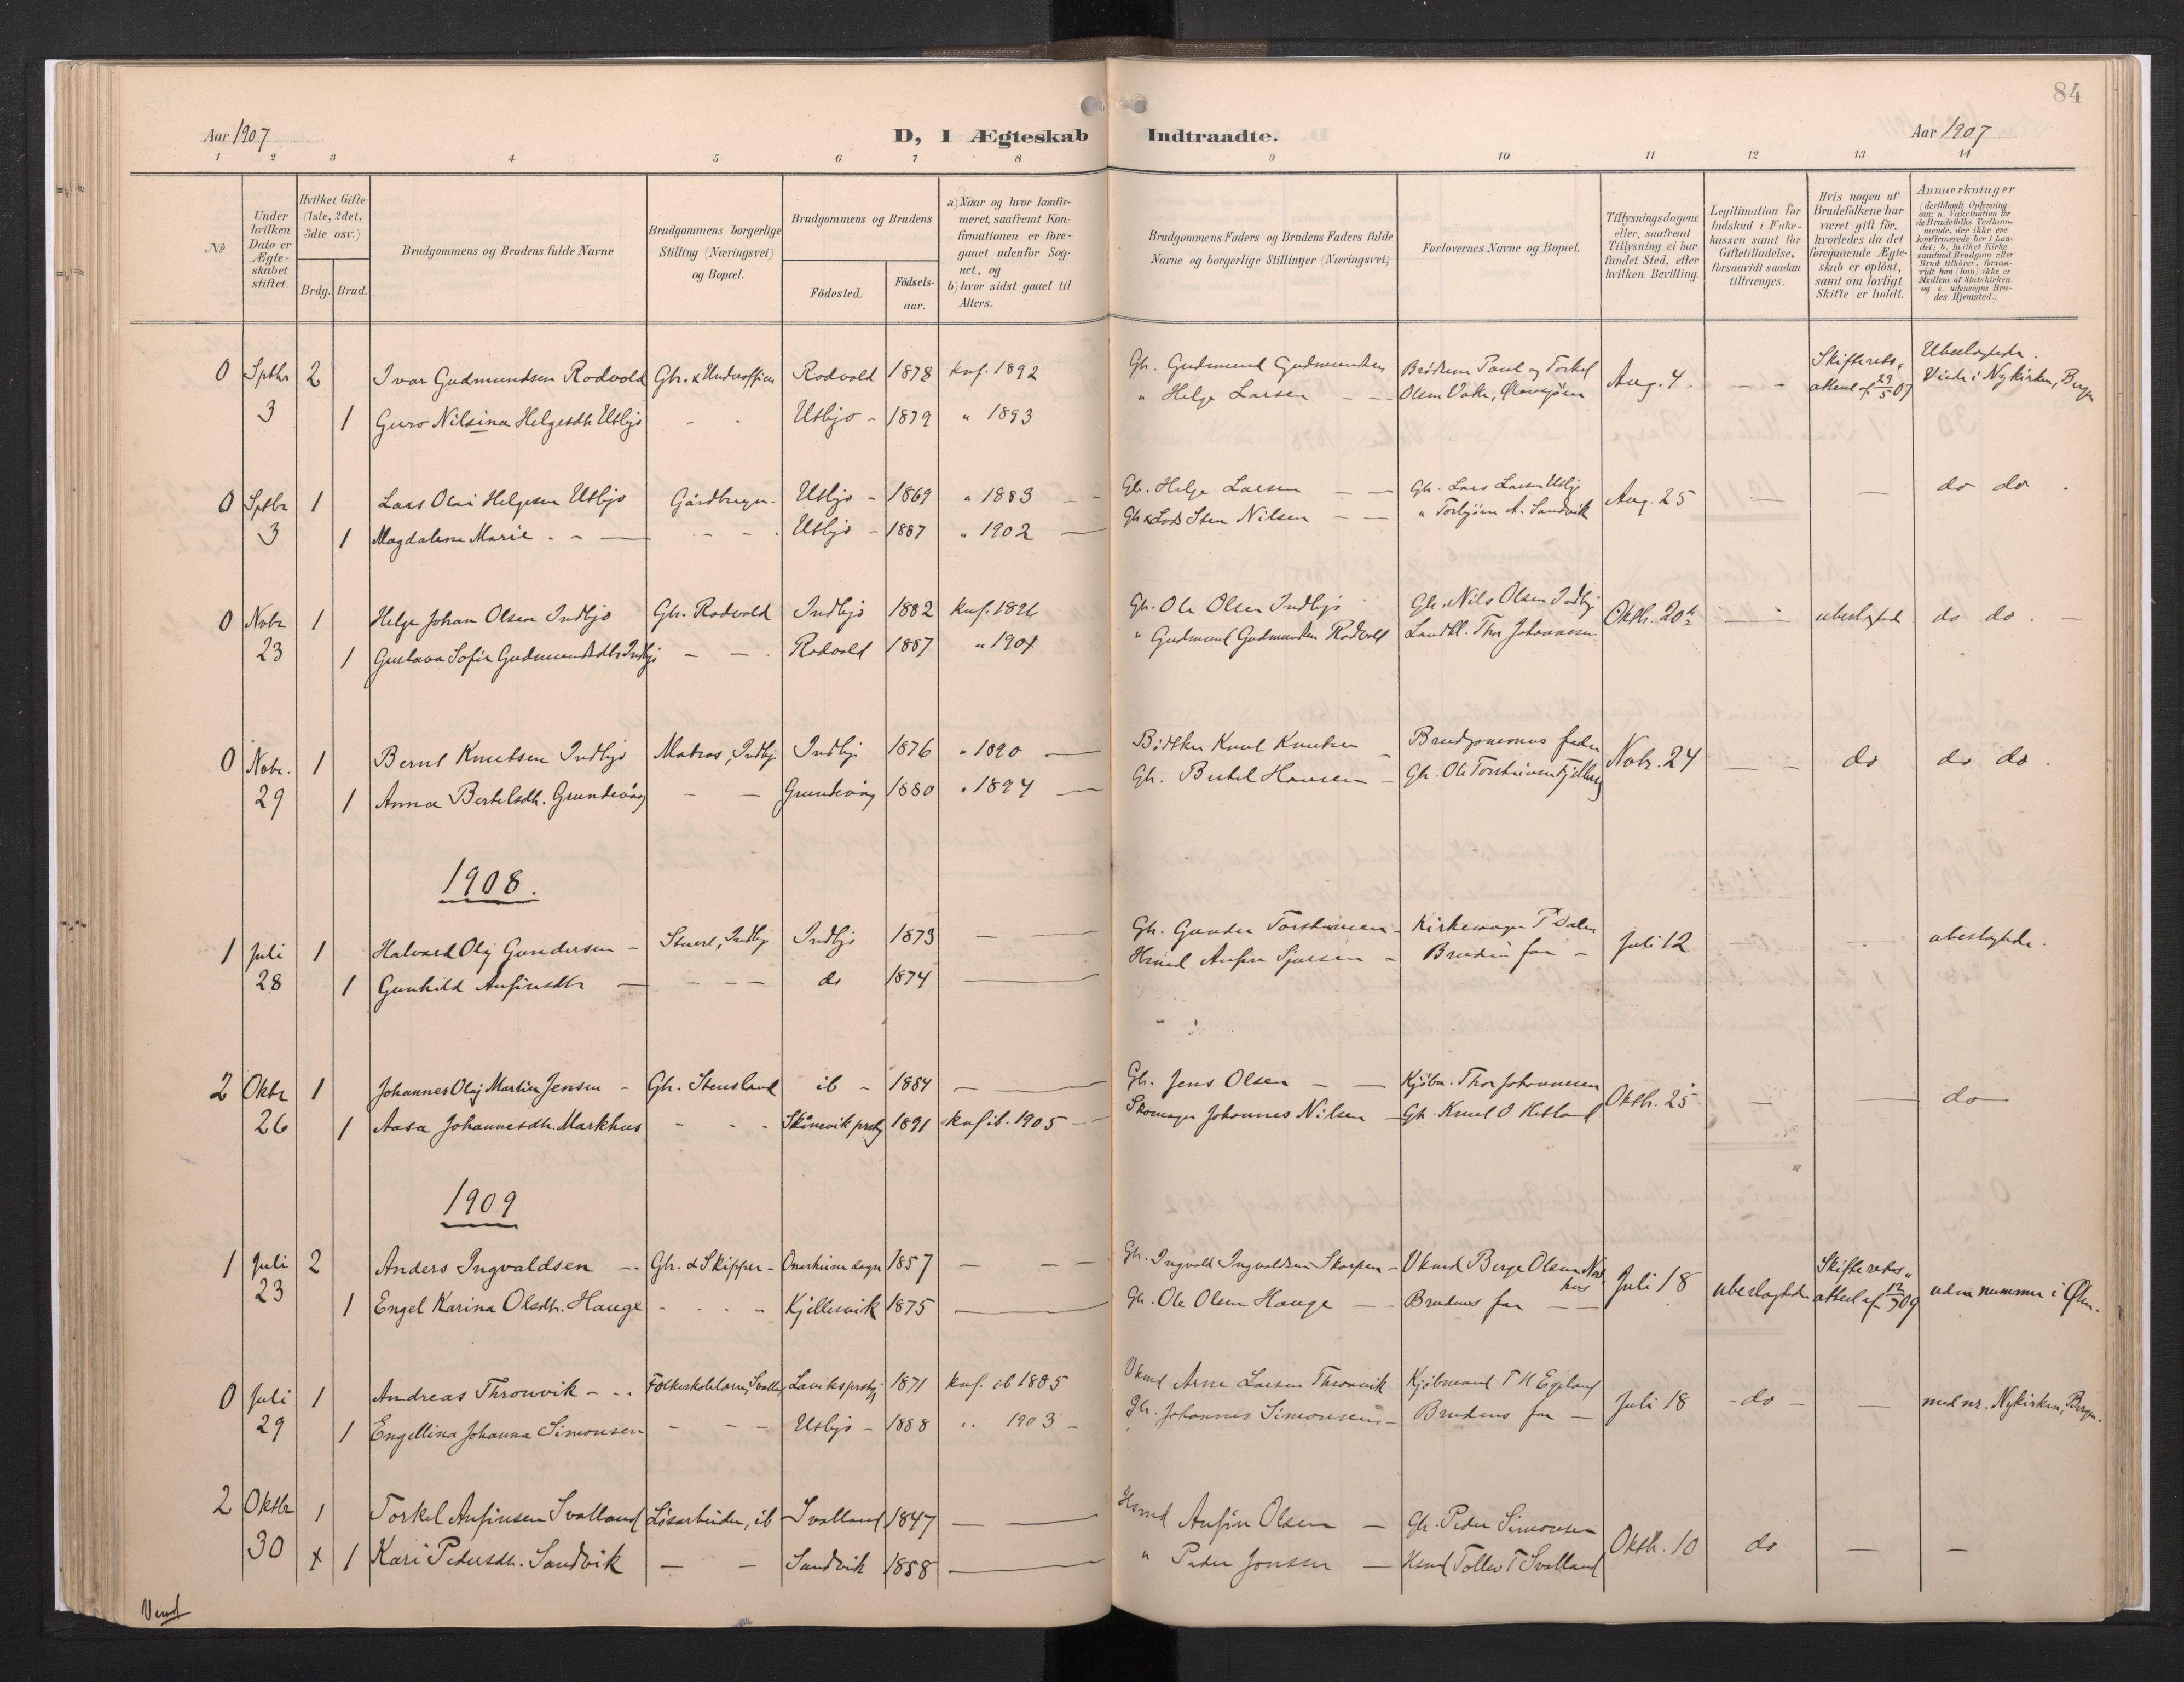 84
Aar 1907
D, I Ægteskab Indtraadte.
Aar 1907
1 2 3 4 5 6 7 8 9 10 11 12 13 14
No
Under hvilken Dato er Ægteskabet stiftet.
Hvilket Gifte (1ste, 2det, 3die osv.)
Brdg. Brud.
Brudgommens og Brudens fulde Navne
Brudgommens borgerlige Stilling (Næringsvei) og Bopæl.
Brudgommens og Brudens
Födested.
Födselsaar.
a) Naar og hvor konfirmeret, saafremt Konfirmationen er foregaaet udenfor Sognet, og
b) hvor sidst gaaet til Alters.
Brudgommens Faders og Brudens Faders fulde Navne og borgerlige Stillinger (Næringsvei)
Forlovernes Navne og Bopæl.
Tillysningsdagene eller, saafremt Tillysning ei har fundet Sted, efter hvilken Bevilling.
Legitimation for Indskud i Enkekassen samt for Giftetilladelse, forsaavidt saadan tiltrænges.
Hvis nogen af Brudefolkene har været gift för, hvorledes da det foregaaende Ægteskab er oplöst, samt om lovligt Skifte er holdt.
Anmærkninger (deriblandt Oplysning om: a. Vakcination för de Brudefolks Vedkommende, der ikke ere konfirmerede her i Landet; b. hvilket Kirkesamfund Brudgom eller Brud tilhörer, forsaavidt han (hun) ikke er Medlem af Statskirken, og c. udensogns Brudes Hjemsted.)
0 Sptbr 2 Ivar Gudmundsen Rodvold Gbr. & Underofficer Rodvold 1878 knf. 1892 Gb. Gudmund Gudmundsen Brødrene Paul og Torkel Aug. 4 - - Skifterets- Ubeslægtede.
3 1 Guro Nilsina Helgesdtr Utbjo - - Utbjo - 1879 " 1893 " Helge Larsen - - Olsen Vake, Ølensjøen attest af 29/5 07 Viede i Nykirken, Bergen
0 Sptbr 1 Lars Olai Helgesen Utbjo Gårdbruger. Utbjo - 1869 " 1883 - - Gb. Helge Larsen - - Gb. Lars Larsen Utbj Aug. 25 - - do do.
3 1 Magdalene Marie - - - - - Utbjo - 1887 " 1902 - Gb & Lods Sten Nilsen - - " Torbjørn A. Sandvik
0 Nobr 1 Helge Johan Olsen Indbjo Gbr. Rodvold Indbjo 1882 knf. 1896 Gb. Ole Olsen Indbjo Gb. Nils Olsen Indbj Oktb. 20de - - ubeslægtd do do. -
23 1 Gustava Sofie Gudmundsdtr Indbjo - - Rodvold 1887 " 1901 " Gudmund Gudmundsen Rodvold Landhl. Thor Johannesen
0 Nobr. 1 Bernt Knutsen Indbjo Matros, Indbj Indbjo 1876 " 1890 - Bødker Knut Knutsen - Brudgommens fader Nobr. 24 - - do do do.
29 1 Anna Bertelsdtr. Grundevåg - - Grundevåg 1880 " 1894 - Gb. Bertel Hansen - Gb. Ole Torstensen Fjellberg
1908.
1 Juli 1 Halvard Olaj Gundersen - Stuert, Indbj Indbjo 1873 - - Gb. Gunder Torstensen - Kirkesanger P Dalen Juli 12 ubeslægtede.
28 1 Gunhild Anfinsdtr - - - - do 1874 - Hsmd Anfin Sjursen - Brudens far -
2 Oktbr 1 Johannes Olaj Martin Jensen - Gb. Stensland ib - 1884 - Gb. Jens Olsen - - Kjøbm. Thor Johannesen Oktb. 25 - - do
26 1 Aasa Johannesdtr. Markhus - - - Skånevik prstg 1891 knf ib. 1905 - Skomager Johannes Nilsen - Gb. Knut O Hetland
1909
1 Juli 2 Anders Ingvaldsen - Gb. & Skipper - Onarheim sogn 1857 - - - Gb. Ingvald Ingvaldsen Skorpen - Vkmd Berge Olsen Nordhus Juli 18 ubeslægtede Skifterets- uden nummer i Ølen.
23 1 Engel Karina Olesdtr. Hauge - - - - Kjellesvik 1875 - Gb. Ole Olsen Hauge - - Brudens far - attest af 12/7 09
0 Juli 1 Andreas Thronvik - - Folkeskolelærer, Laviks prstgj 1871 knf. ib 1885 Vkmd Arne Larsen Thronvik Kjøbmand T H Egeland Juli 18 - do - - med nr. Nykirken, Bergen.
29 1 Engellina Johanna Simonsen - - - Utbjo - 1888 " 1903 - Gb. Johannes Simonsen - Brudens far -
2 Oktbr 1 Torkel Anfinsen Svolland Løsarbeider, ib Svolland 1847 - - Hsmd Anfin Olsen - Gb. Peder Simonsen Oktb. 10 do - -
30 x 1 Kari Pedersdtr. Sandvik - - Sandvik 1858 - " Peder Jonsen - Hsmd Tollev T Svolland
Vend